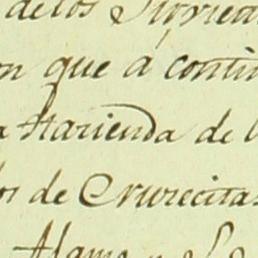 de los Propieta
on que á contin
a Hazienda de l
os de Crurecitas
Alamo y